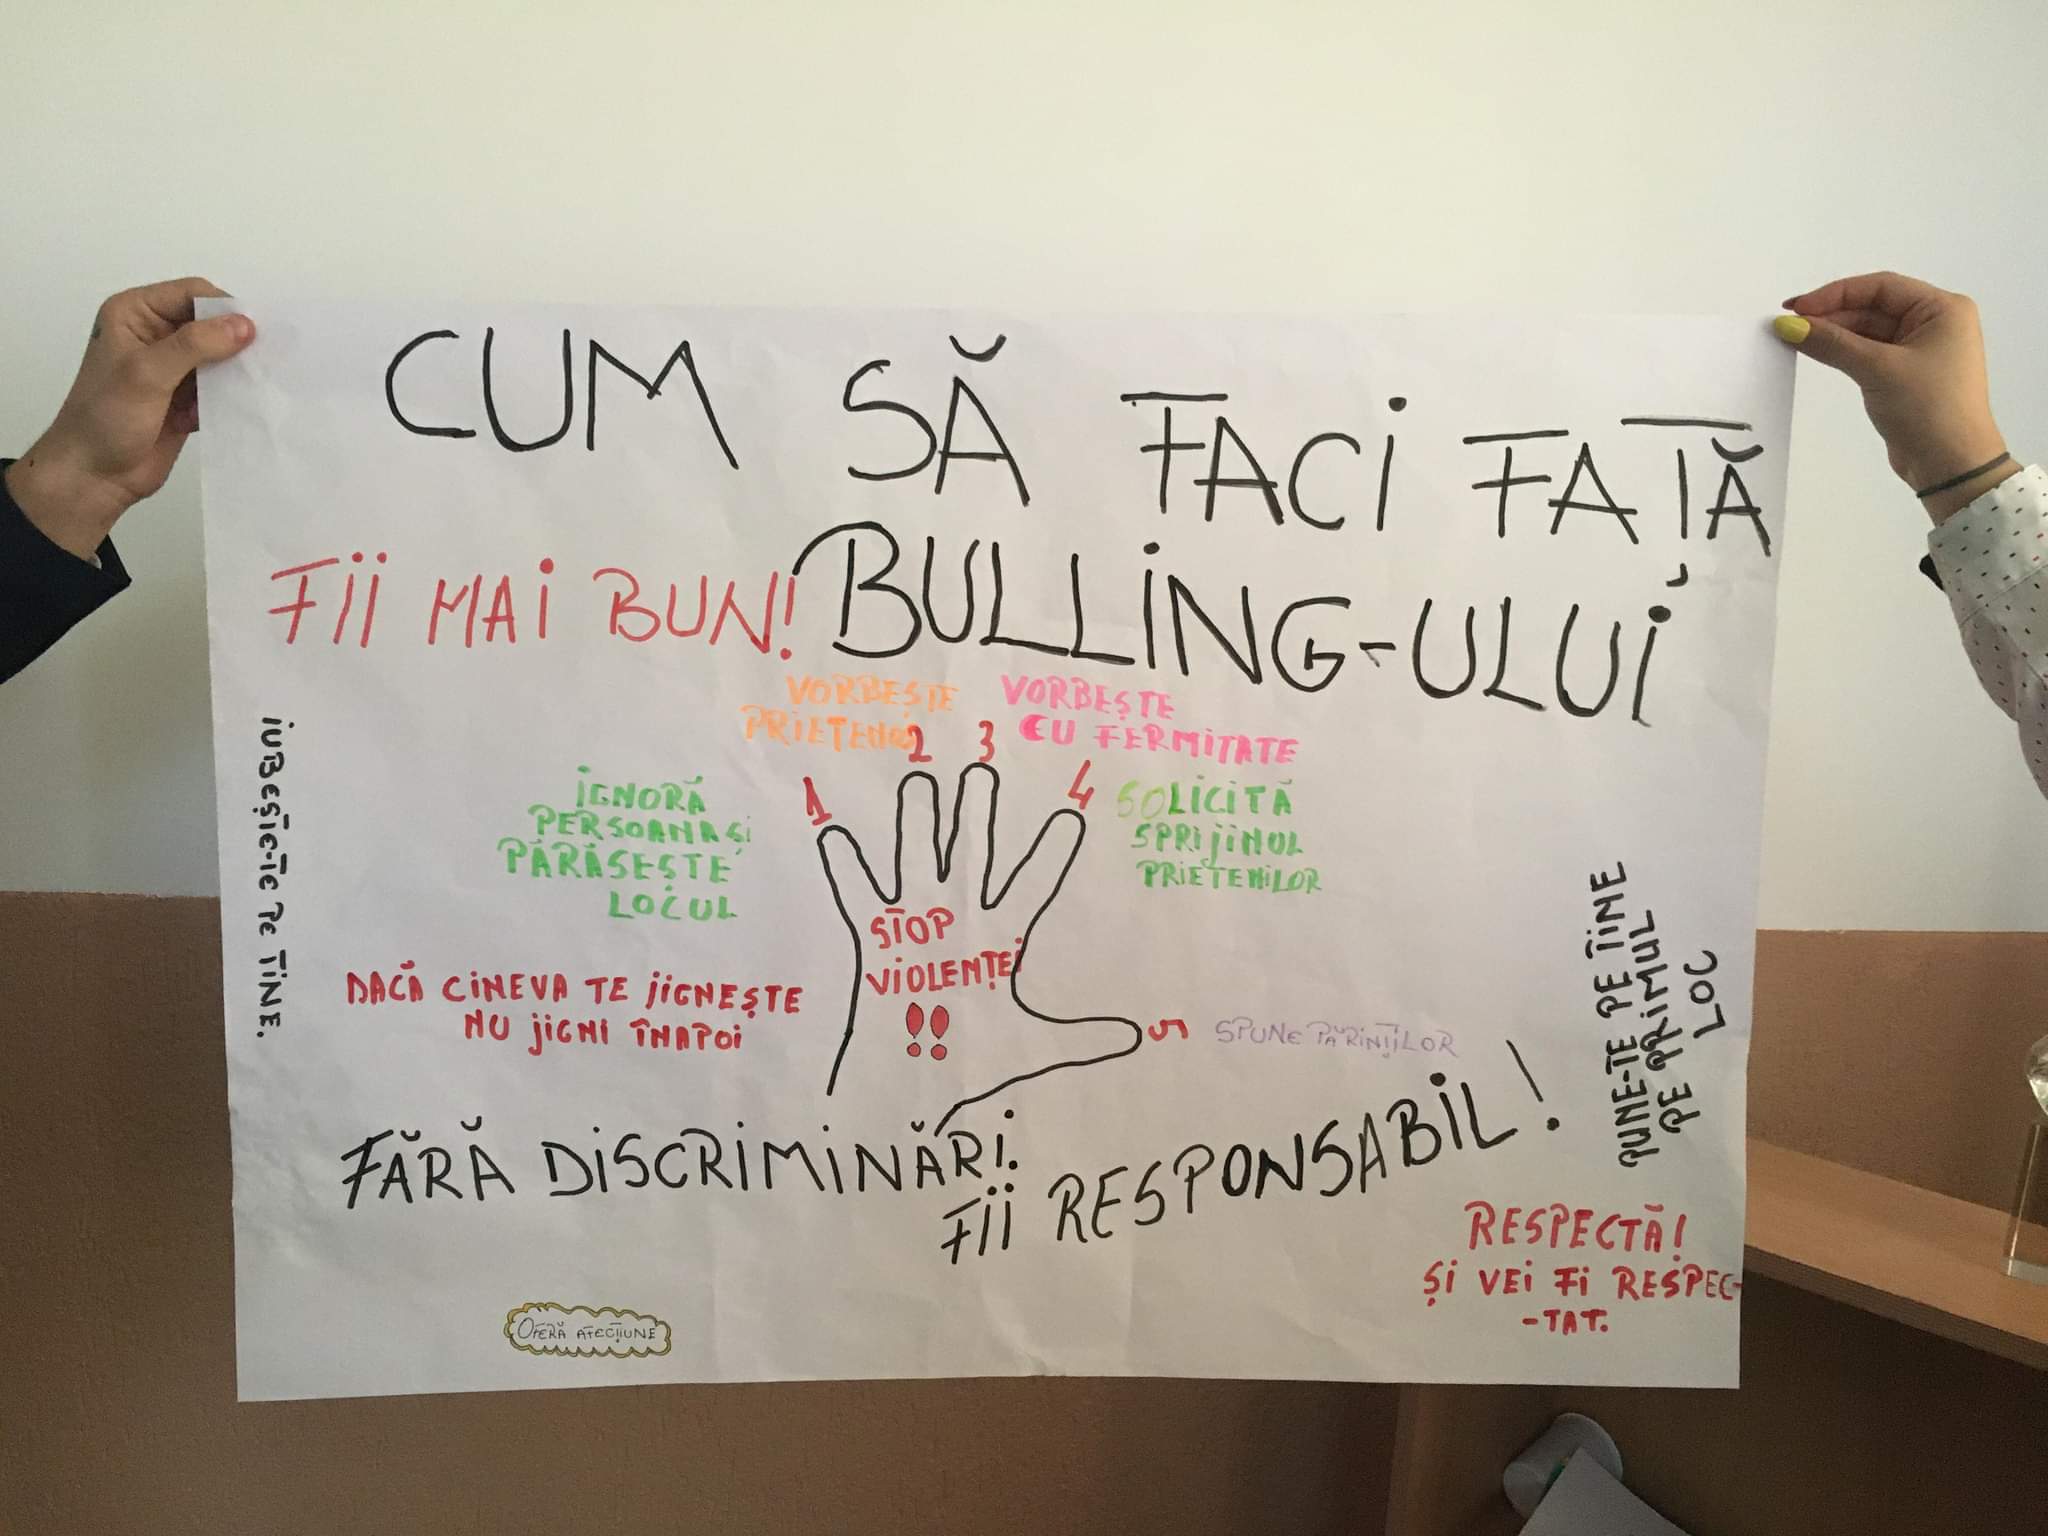 CUM SĂ FACI FAȚĂ
BULLING-ULUI
FII MAI BUN!
VORBEȘTE
PRIETENOS
VORBEȘTE
CU FERMITATE
1
2
3
4
5
IGNORĂ
PERSOANA ȘI
PĂRĂSEȘTE
LOCUL
SOLICITĂ
SPRIJINUL
PRIETENILOR
IUBEȘTE-TE PE TINE.
STOP
VIOLENȚEI
!!
DACĂ CINEVA TE JIGNEȘTE
NU JIGNI ÎNAPOI
SPUNE PĂRINȚILOR
PUNE-TE PE TINE
PE PRIMUL
LOC
FĂRĂ DISCRIMINĂRI.
FII RESPONSABIL!
RESPECTĂ!
ȘI VEI FI RESPEC-
-TAT.
OFERĂ AFECȚIUNE